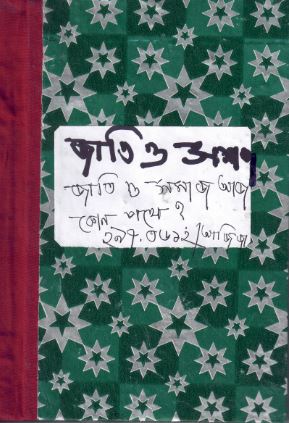 জাতি ও সমাজ
জাতি ও সমাজ আজ
কোন পথে ?
২৯৭.৩৬১২/আজিজা